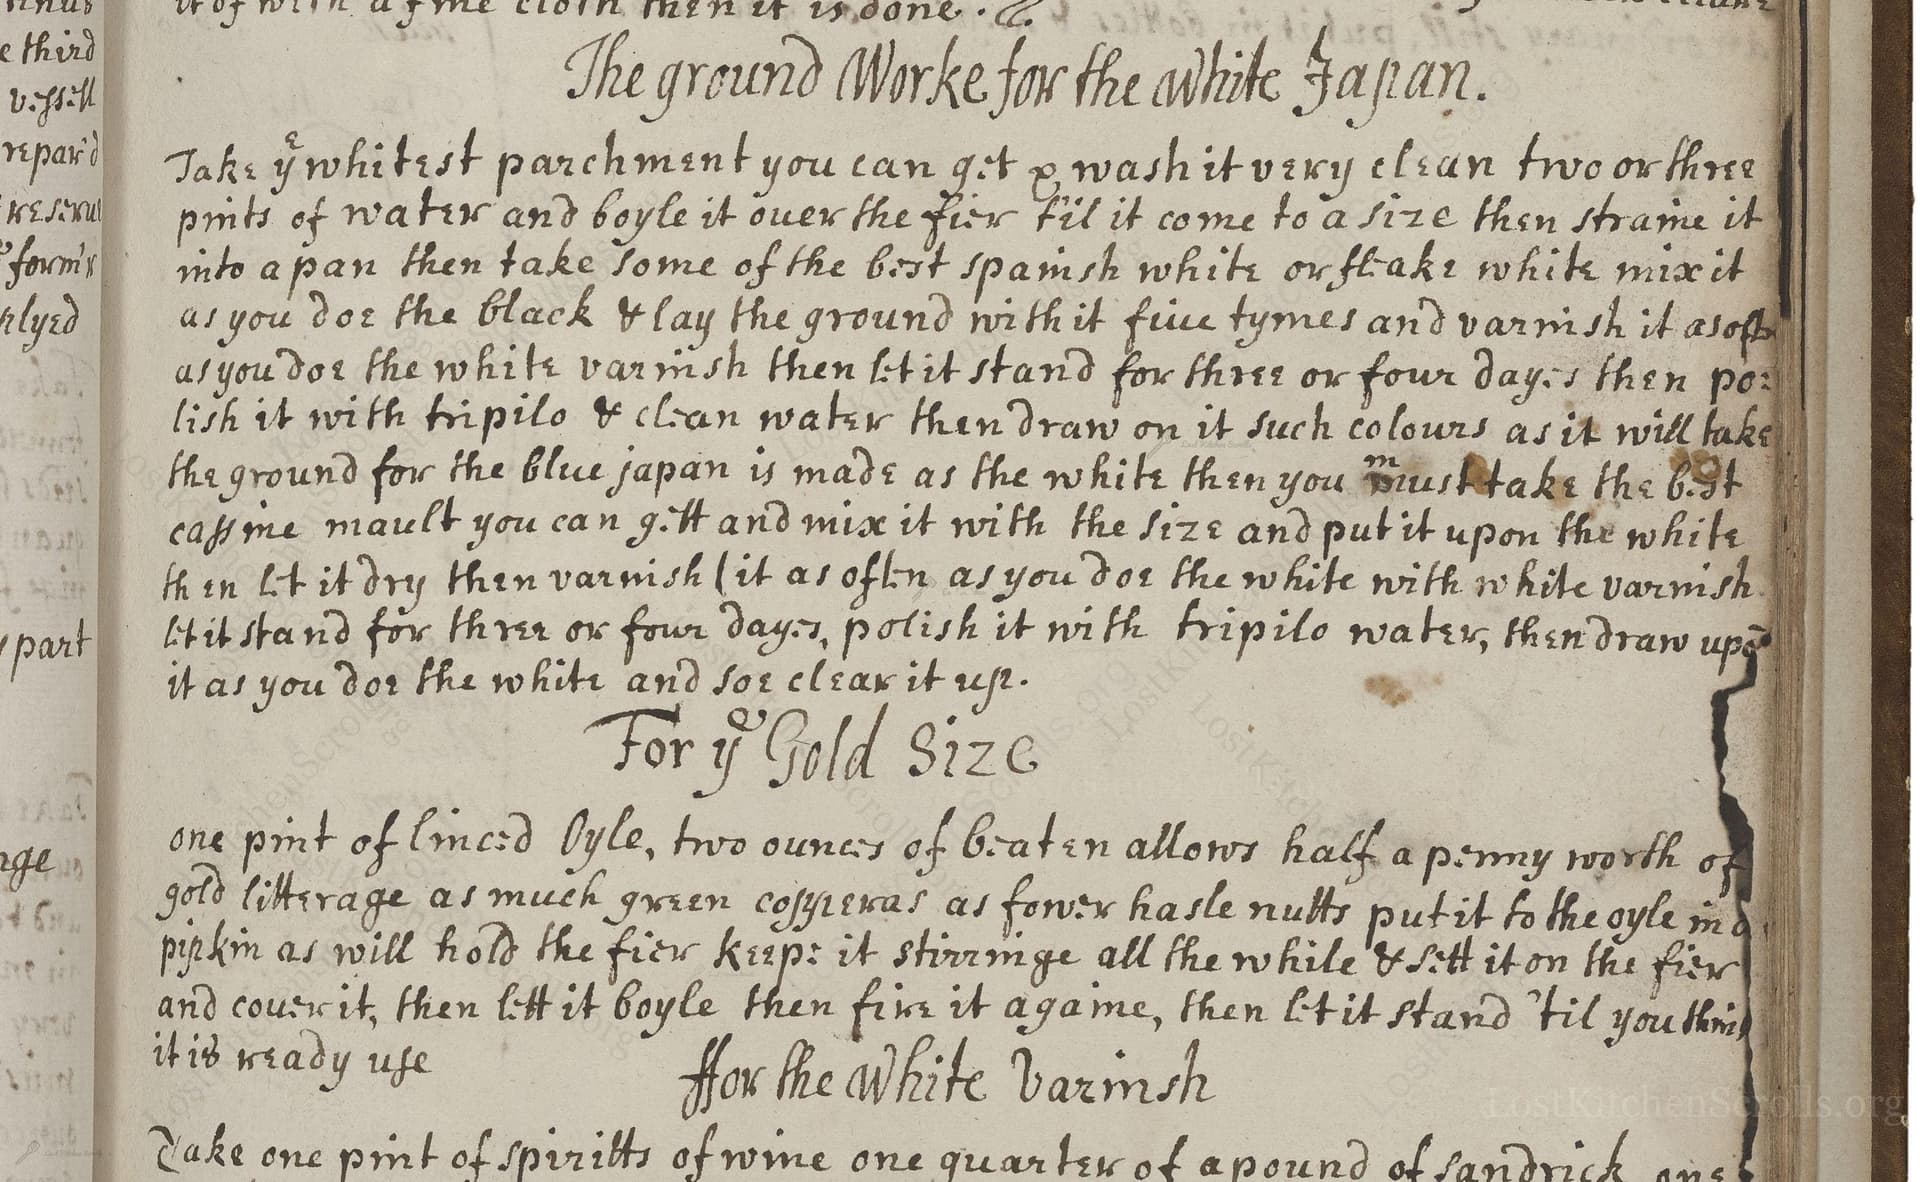 it of with a fine cloth then it is done.
The ground Worke for the White Japan.
Take yͤ whitest parchment you can get & wash it very clean two or three
pints of water and boyle it ouer the fier t'il it come to a size then straine it
into a pan then take some of the best spanish white or fleake white mix it
as you doe the black & lay the ground with it fiue tymes and varnish it as oft
as you doe the white varnish then let it stand for three or four dayes then po:
lish it with tripilo & clean water then draw on it such colours as it will take
the ground for the blue japan is made as the white then you must take the best
cassine mault you can gett and mix it with the size and put it upon the white
then let it dry then varnish (it as often as you doe the white with white varnish
let it stand for three or four dayes, polish it with tripilo water, then draw upō
it as you doe the white and soe clear it up.
For yͤ Gold Size
one pint of linced Oyle, two ounces of beaten allows half a penny worth of
gold litterage as much green copperas as fower hasle nutts put it to the oyle in a
pipkin as will hold the fier keepe it stirringe all the while & sett it on the fier
and couer it, then lett it boyle then fire it againe, then let it stand 'til you think
it is ready use
ffor the White Varnish
Take one pint of spiritts of wine one quarter of a pound of sandrick one
e third
vessell
repar'd
reserue
form'r
elyed
part
LostKitchenScrolls.org